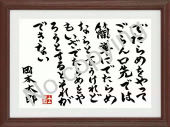 でたらめをやって
ごらん。口先では、
簡単にでたらめ
ならやるさというけれど
もいざでたらめをや
ろうとするとそれが
できない
岡本太郎
no copying